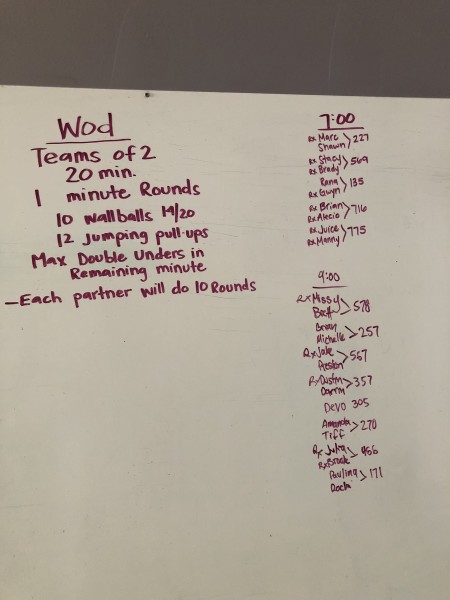 Wod
Teams of 2
20 min.
1 minute Rounds
10 wallballs 14/20
12 Jumping pull-ups
Max Double Unders in
Remaining minute
-Each partner will do 10 Rounds
7:00
Rx Marc
Shawn > 227
Rx Stacy
Rx Brady > 569
Rana
Rx Gwyn > 135
Rx Brian
Rx Alecia > 716
Rx Juice
Rx Manny > 775
9:00
Rx Missy
Brett > 578
Michelle > 257
Rx Jake
Preston > 567
Rx Dustin
> 357
Devo 305
Amanda
Tiff > 270
Rx Julia
Rx Brook
Paulina > 171